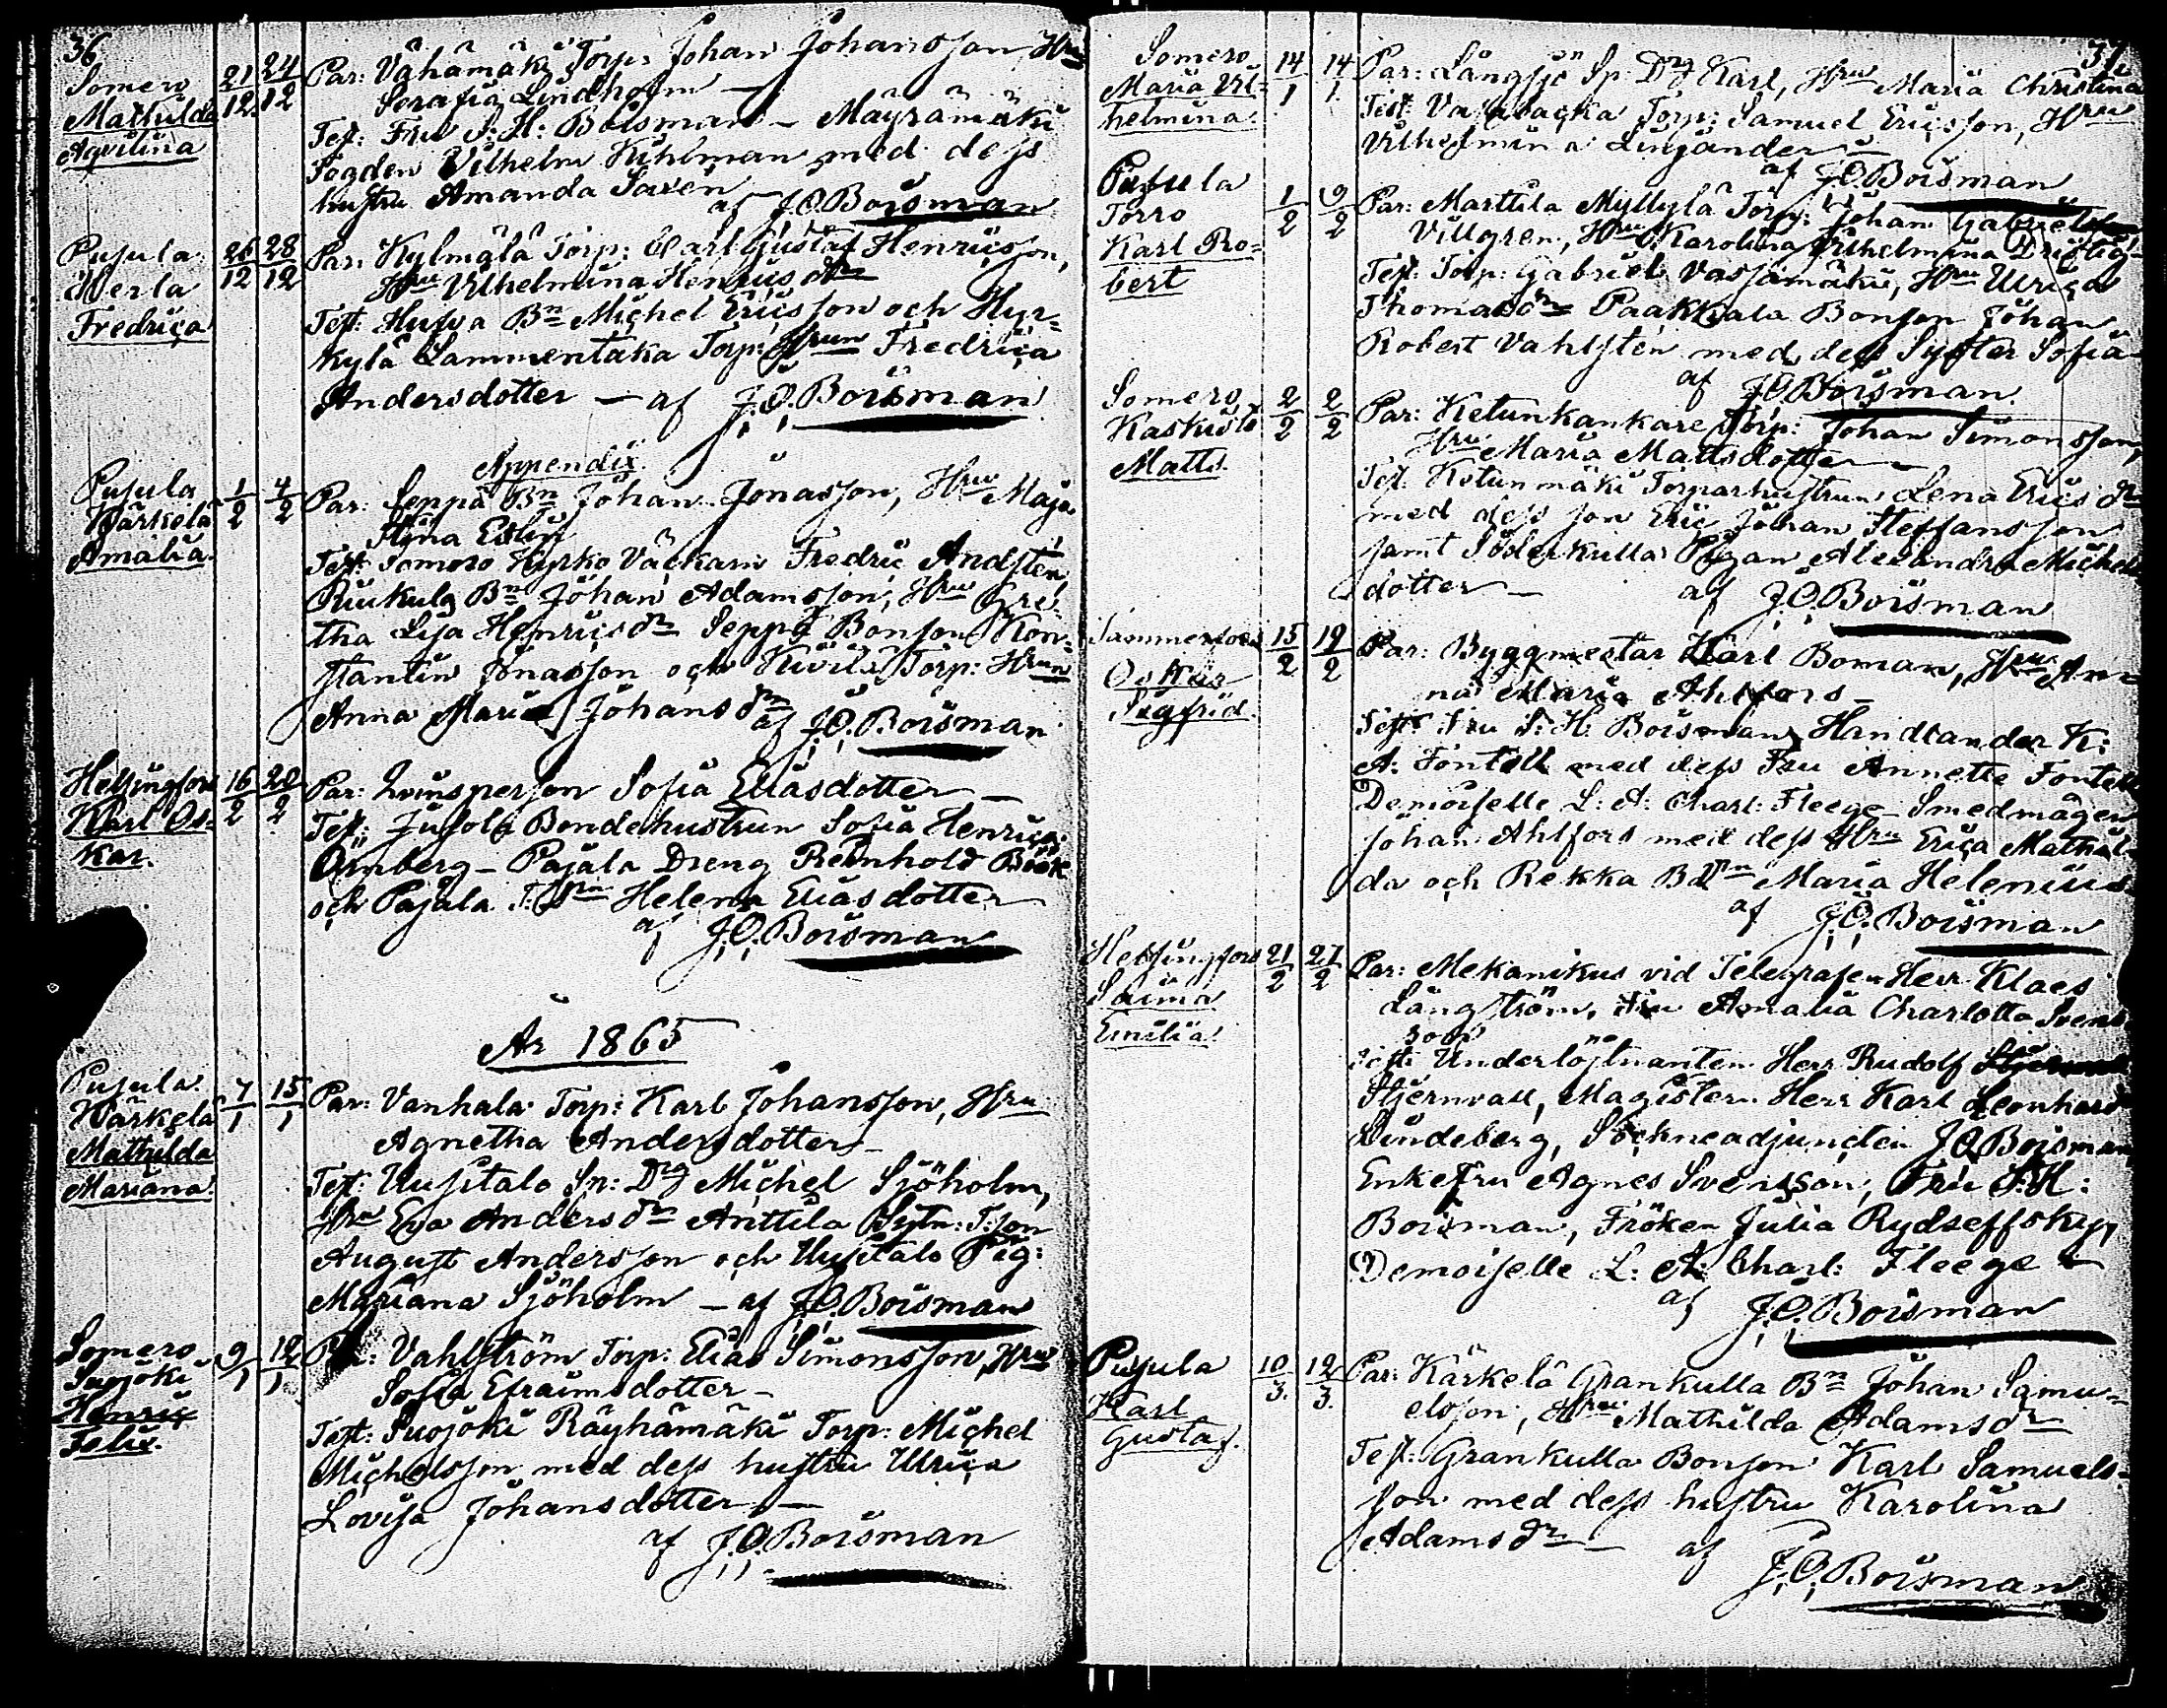 36
Somero
Mathilda
Aqvilina
21/12 24/12
Par: Vähämäki Torp: Johan Johansson, Hru
Serafia Lindholm —
Test: Fru S: H: Boisman — Mäyrämäki
Fogden Vilhelm Kihlman med dess
hustru Amanda Saxén
af J.O. Boisman
Pusula
Herla
Fredrica
26/12 28/12
Par: Kylmälä Torp: Carl Gustaf Henricsson,
Hru Vilhelmina Henricsdr
Test: Hirva Bn Michel Ericsson och Hyr-
kylä Lammentaka Torp: Hrun Fredrica
Andersdotter — af J.O. Boisman
Appendix
Pusula
Kärkelä
Amalia
1/2 4/2
Par: Seppä Bn Johan Jonasson, Hru Maja
Stina Edlin
Test: Somero Kyrko Väckarn Fredric Andstén,
Bn Johan Adamsson, Hru Gre-
tha Lisa Henricsdr Seppä Bonson Kon-
stantin Jonasson och Kivilä Torp: Hrun
Anna Maria Johansdr
af J.O. Boisman
Helsingfors
Karl Os-
kar.
16/2 28/2
Par: Qvinsperson Sofia Eliasdotter —
Test: Bondehustrun Sofia Henrica
Örnberg — Pajala Dreng Reinhold Böök
och Pajala Helena Eliasdotter
af J.O. Boisman
År 1865
Pusula
Kärkelä
Mathilda
Mariana
7/1 15/1
Par: Vanhala Torp: Karl Johansson, Hru
Agnetha Andersdotter —
Test: Uusitalo Sp: Drg Michel Sjöholm,
Hru Eva Andersdr Anttila Sytn: T:son
August Andersson och Uusitalo Pig:
Mariana Sjöholm — af J.O. Boisman
Somero
Suojoki
Henric
Felix.
9/1 12/1
Par: Vahlström Torp: Elias Simonsson, Hru
Sofia Efraimsdotter —
Test: Suojoki Räyhämäki Torp: Michel
Michelsson med dess hustru Ulrica
Lovisa Johansdotter —
af J.O. Boisman
37
Somero
Maria Vil-
helmina
14/1 14/1
Par: Långsjö Sp: Drg Karl, Hru Maria Christina
Test: Torp: Samuel Ericsson, Hru
Vilhelmina
af J.O. Boisman
Pusula
Torro
Karl Ro-
bert
1/2 9/2
Par: Marttila Myllylä Torp: Johan Gabrielsson
Villgren, Hru Karolina Vilhelmina
Test: Torp: Gabriel Vassamäki, Hru Ulrica
Thomasdr Paakkala Bonson Johan
Robert Vahlstén med dess Syster Sofia
af J.O. Boisman.
Somero
Kaskisto
Matts.
2/2 2/2
Par: Ketunkankare Torp: Johan Simonsson,
Hru Maria Mattsdotter —
Test. Ketunmäki Torparhustrun Lena Ericsdr
med dess son Eric Johan Steffansson
samt Söderkulla Pigan Alexandra Michels
dotter — af J.O. Boisman
Oskar
Sigfrid.
15/2 19/2
Par: Byggmestar Karl Boman, Hru An-
na Maria Ahlfors —
Test: Fru S: H: Boisman, Handlanden K:
A: Fontell med dess Fru Annette Fontell
Demoiselle L: A: Charl: Fleege — Smedmågen
Johan Ahlfors med dess Hru Erica Mathil-
da och Rekka Maria Helenius
af J.O. Boisman
Helsingfors
Saima
Emilia.
21/2 27/2
Par: Mekanikus vid Telegrafen Herr Klaes
Långström, Fru Amalia Charlotta Svens
son
Test: Underlöjtnanten Herr Rudolf
Stjernvall, Magistern Herr Karl Leonhard
Lindeberg, Sockneadjuncten J.O. Boisman,
Enkefru Agnes Svensson, Fru S: H:
Boisman, Fröken Julia Rydseffsky,
Demoiselle L: A: Charl: Fleege —
af J.O. Boisman
Pusula
Karl
Gustaf.
10/3. 12/3.
Par: Kärkelä Grankulla Bn Johan Samu-
elsson, Hru Mathilda Adamsdr
Test: Grankulla Bonson Karl Samuels-
son med dess hustru Karolina
Adamsdr — af
J.O. Boisman